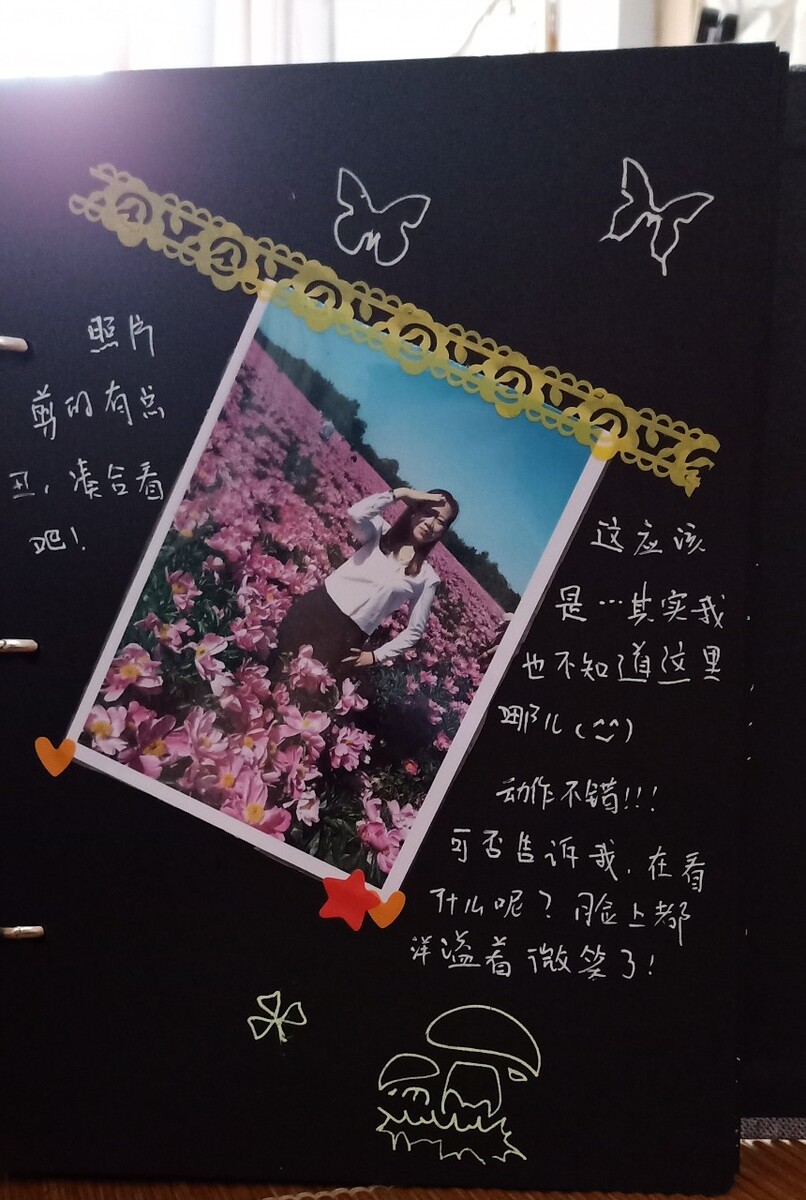 照片
剪的有点
丑，凑合看
吧！
这应该
是…其实我
也不知道这里
哪儿(^^)
动作不错!!!
可否告诉我，在看
什么呢？脸上都
洋溢着微笑了！